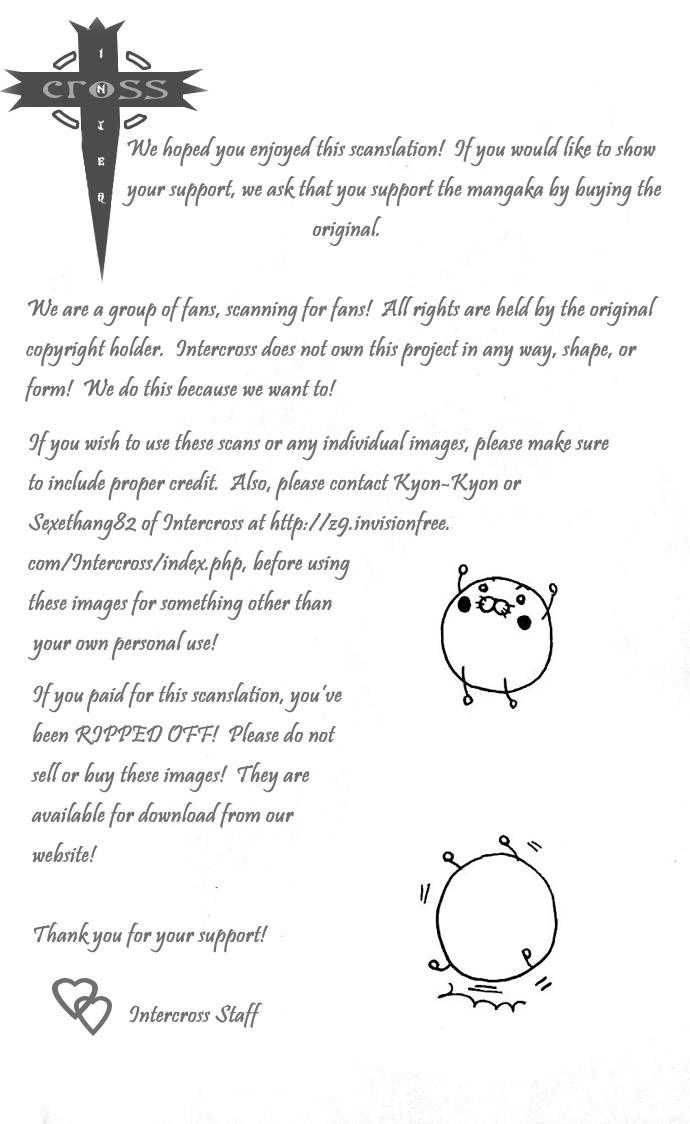 INTER
cross
We hoped you enjoyed this scanslation! If you would like to show
your support, we ask that you support the mangaka by buying the
original.
We are a group of fans, scanning for fans! All rights are held by the original
copyright holder. Intercross does not own this project in any way, shape, or
form! We do this because we want to!
If you wish to use these scans or any individual images, please make sure
to include proper credit. Also, please contact Kyon-Kyon or
Sexethang82 of Intercross at http://z9.invisionfree.
com/Intercross/index.php, before using
these images for something other than
your own personal use!
If you paid for this scanslation, you've
been RIPPED OFF! Please do not
sell or buy these images! They are
available for download from our
website!
Thank you for your support!
Intercross Staff